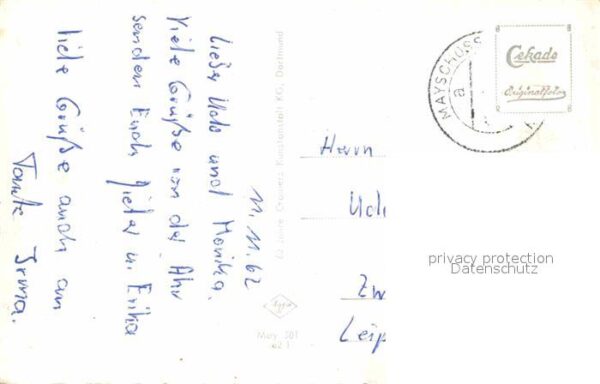 11. 11. 62
Lieber Udo und Monika.
Viele Grüße von der Ahr
senden Euch Dieter u. Erika
liebe Grüße auch an
Tante Irma.
62 Jahre Cramers Kunstanstalt KG, Dortmund
Agfa
May 501
62 1
MAYSCHOSS
a
Cekade
Originalfoto
Herrn
Udo
Zw
Leip
privacy protection
Datenschutz